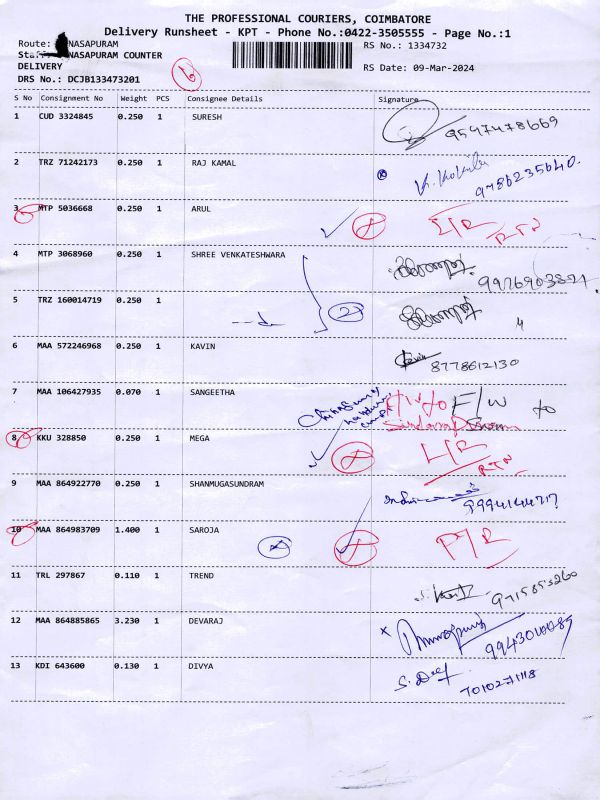 THE PROFESSIONAL COURIERS, COIMBATORE
Delivery Runsheet - KPT - Phone No.:0422-3505555 - Page No.:1
Route: NASAPURAM
RS No.: 1334732
NASAPURAM COUNTER
DELIVERY
RS Date: 09-Mar-2024
DRS No.: DCJB133473201
S No Consignment No Weight PCS Consignee Details Signature
1 CUD 3324845 0.250 1 SURESH 9597478669
2 TRZ 71242173 0.250 1 RAJ KAMAL 9786235640.
3 MTP 5036668 0.250 1 ARUL RTN
4 MTP 3068960 0.250 1 SHREE VENKATESHWARA
5 TRZ 160014719 0.250 1 2
6 MAA 572246968 0.250 1 KAVIN 8778612130
7 MAA 106427935 0.070 1 SANGEETHA F/W to F/W to
8 KKU 328850 0.250 1 MEGA RTN
9 MAA 864922770 0.250 1 SHANMUGASUNDRAM 9994144717
10 MAA 864983709 1.400 1 SAROJA
11 TRL 297867 0.110 1 TREND 9715853260
12 MAA 864885865 3.230 1 DEVARAJ
13 KDI 643600 0.130 1 DIVYA